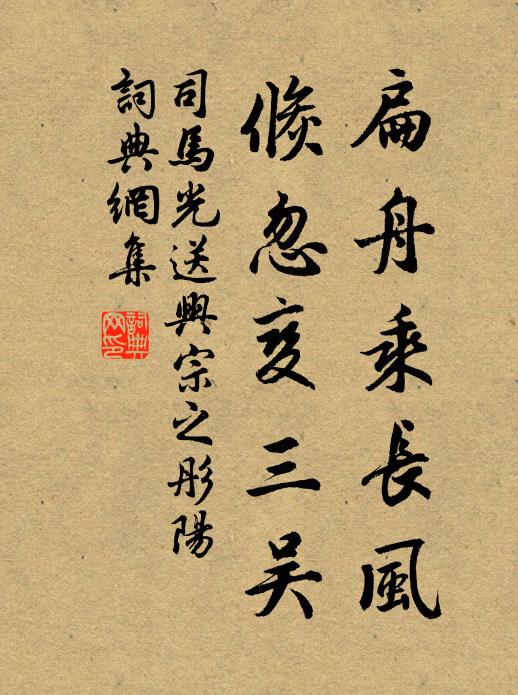 扁舟乘長風
倐忽变三吴
司馬光送興宗之彤陽
詞典網集
詞典
网印